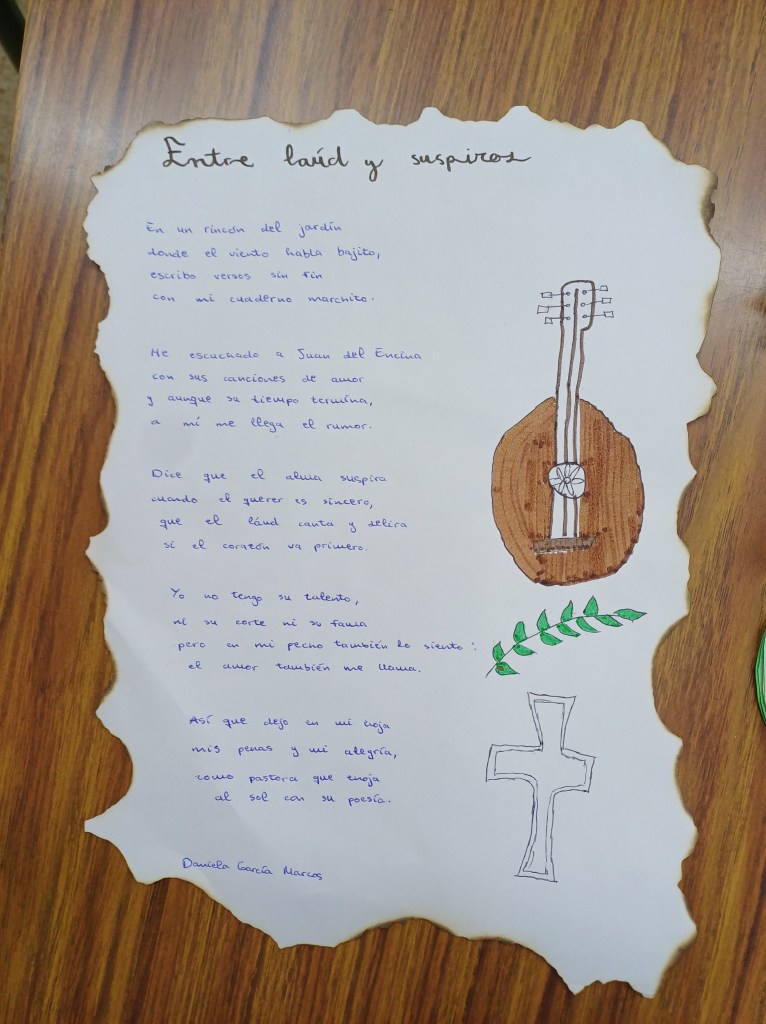 Entre laúd y suspiros
En un rincón del jardín
donde el viento habla bajito,
escribo versos sin fin
con mi cuaderno marchito.
He escuchado a Juan del Encina
con sus canciones de amor
y aunque su tiempo termina,
a mí me llega el rumor.
Dice que el alma suspira
cuando el querer es sincero,
que el láud canta y delira
si el corazón va primero.
Yo no tengo su talento,
ni su corte ni su fama
pero en mi pecho también lo siento:
el amor también me llama.
Así que dejo en mi hoja
mis penas y mi alegría,
como pastora que enoja
al sol con su poesía.
Daniela García Marcos